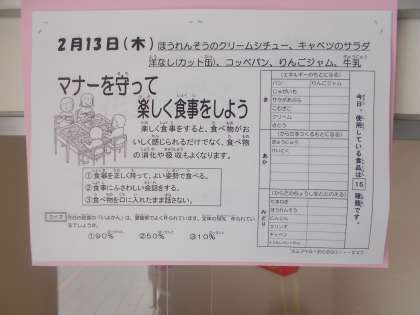 2月13日(木) ほうれんそうのクリームシチュー、キャベツのサラダ
洋なし(カット缶)、コッペパン、りんごジャム、牛乳
マナーを守って
楽しく食事をしよう
楽しく食事をすると、食べ物がお
いしく感じられるだけでなく、食べ物
の消化や吸収もよくなります。
①食器を正しく持って、よい姿勢で食べる。
②食事にふさわしい会話をする。
③食べ物を口に入れたまま話さない。
クイズ
①90% ②50% ③10%
き
(エネルギーのもとになる)
パン りんごジャム
じゃがいも
サラダあぶら
こむぎこ
クリーム
さとう
あか
(からだをつくるもとになる)
ぎゅうにゅう
みどり
(からだのちょうしをととのえる)
たまねぎ
ほうれんそう
にんじん
キャベツ
今日、使用している食品は
15
種類です。